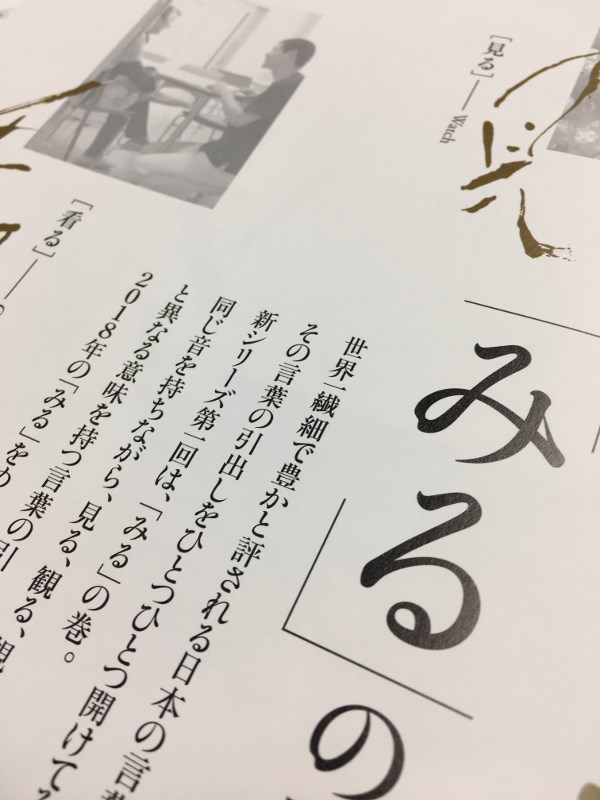 [見る]— Watch
見
「みる」の
世界一繊細で豊かと評される日本の言葉
その言葉の引出しをひとつひとつ開けて
新シリーズ第一回は、「みる」の巻。
同じ音を持ちながら、見る、観る、
と異なる意味を持つ言葉の引
2018年の「みる」を
[看る]—